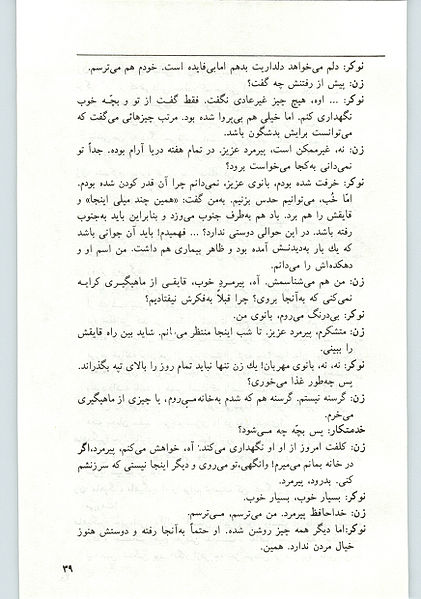 نوکر: دلم می‌خواهد دلداریت بدهم امابی‌فایده است. خودم هم می‌ترسم.
زن: پیش از رفتنش چه گفت؟
نوکر: ... اوه، هیچ چیز غیرعادی نگفت. فقط گفت از تو و بچّه خوب
نگهداری کنم. اما خیلی هم بی‌پروا شده بود. مرتب چیزهائی می‌گفت که
می‌توانست برایش بدشگون باشد.
زن: نه، غیرممکن است، پیرمرد عزیز. در تمام هفته دریا آرام بوده. جداً تو
نمی‌دانی به‌کجا می‌خواست برود؟
نوکر: خرفت شده بودم، بانوی عزیز، نمی‌دانم چرا آن قدر کودن شده بودم.
امّا خُب، می‌توانیم حدس بزنیم. به‌من گفت: «همین چند میلی اینجا» و
قایقش را هم برد. باد هم به‌طرف جنوب می‌وزد و بنابراین باید به‌جنوب
رفته باشد. در این حوالی دوستی ندارد؟ ... فهمیدم! باید آن جوانی باشد
که یك بار به‌دیدنش آمده بود و ظاهر بیماری هم داشت. من اسم او و
دهکده‌اش را می‌دانم.
زن: من هم می‌شناسمش. آه، پیرمردِ خوب، قایقی از ماهیگیری کرایه
نمی‌کنی که به‌آنجا بروی؟ چرا قبلاً به‌فکرش نیفتادیم؟
نوکر: بی‌درنگ می‌روم، بانوی من.
زن: متشکرم، پیرمرد عزیز. تا شب اینجا منتظر می‌مانم. شاید بین راه قایقش
را ببینی.
نوکر: نه، نه، بانوی مهربان! یك زن تنها نباید تمام روز را بالای تپه بگذراند.
پس چه‌طور غذا می‌خوری؟
زن: گرسنه نیستم. گرسنه هم که شدم به‌خانه می‌روم، یا چیزی از ماهیگیری
می‌خرم.
خدمتکار: پس بچّه چه می‌شود؟
زن: کلفت امروز از او او نگهداری می‌کند. آه، خواهش می‌کنم، پیرمرد،اگر
در خانه بمانم می‌میرم! وانگهی،تو می‌روی و دیگر اینجا نیستی که سرزنشم
کنی. بدرود، پیرمرد.
نوکر: بسیار خوب، بسیار خوب.
زن: خداحافظ پیرمرد. من می‌ترسم، می‌ترسم.
نوکر:اما دیگر همه چیز روشن شده. او حتماً به‌آنجا رفته و دوستش هنوز
خیال مردن ندارد. همین.
۳۹